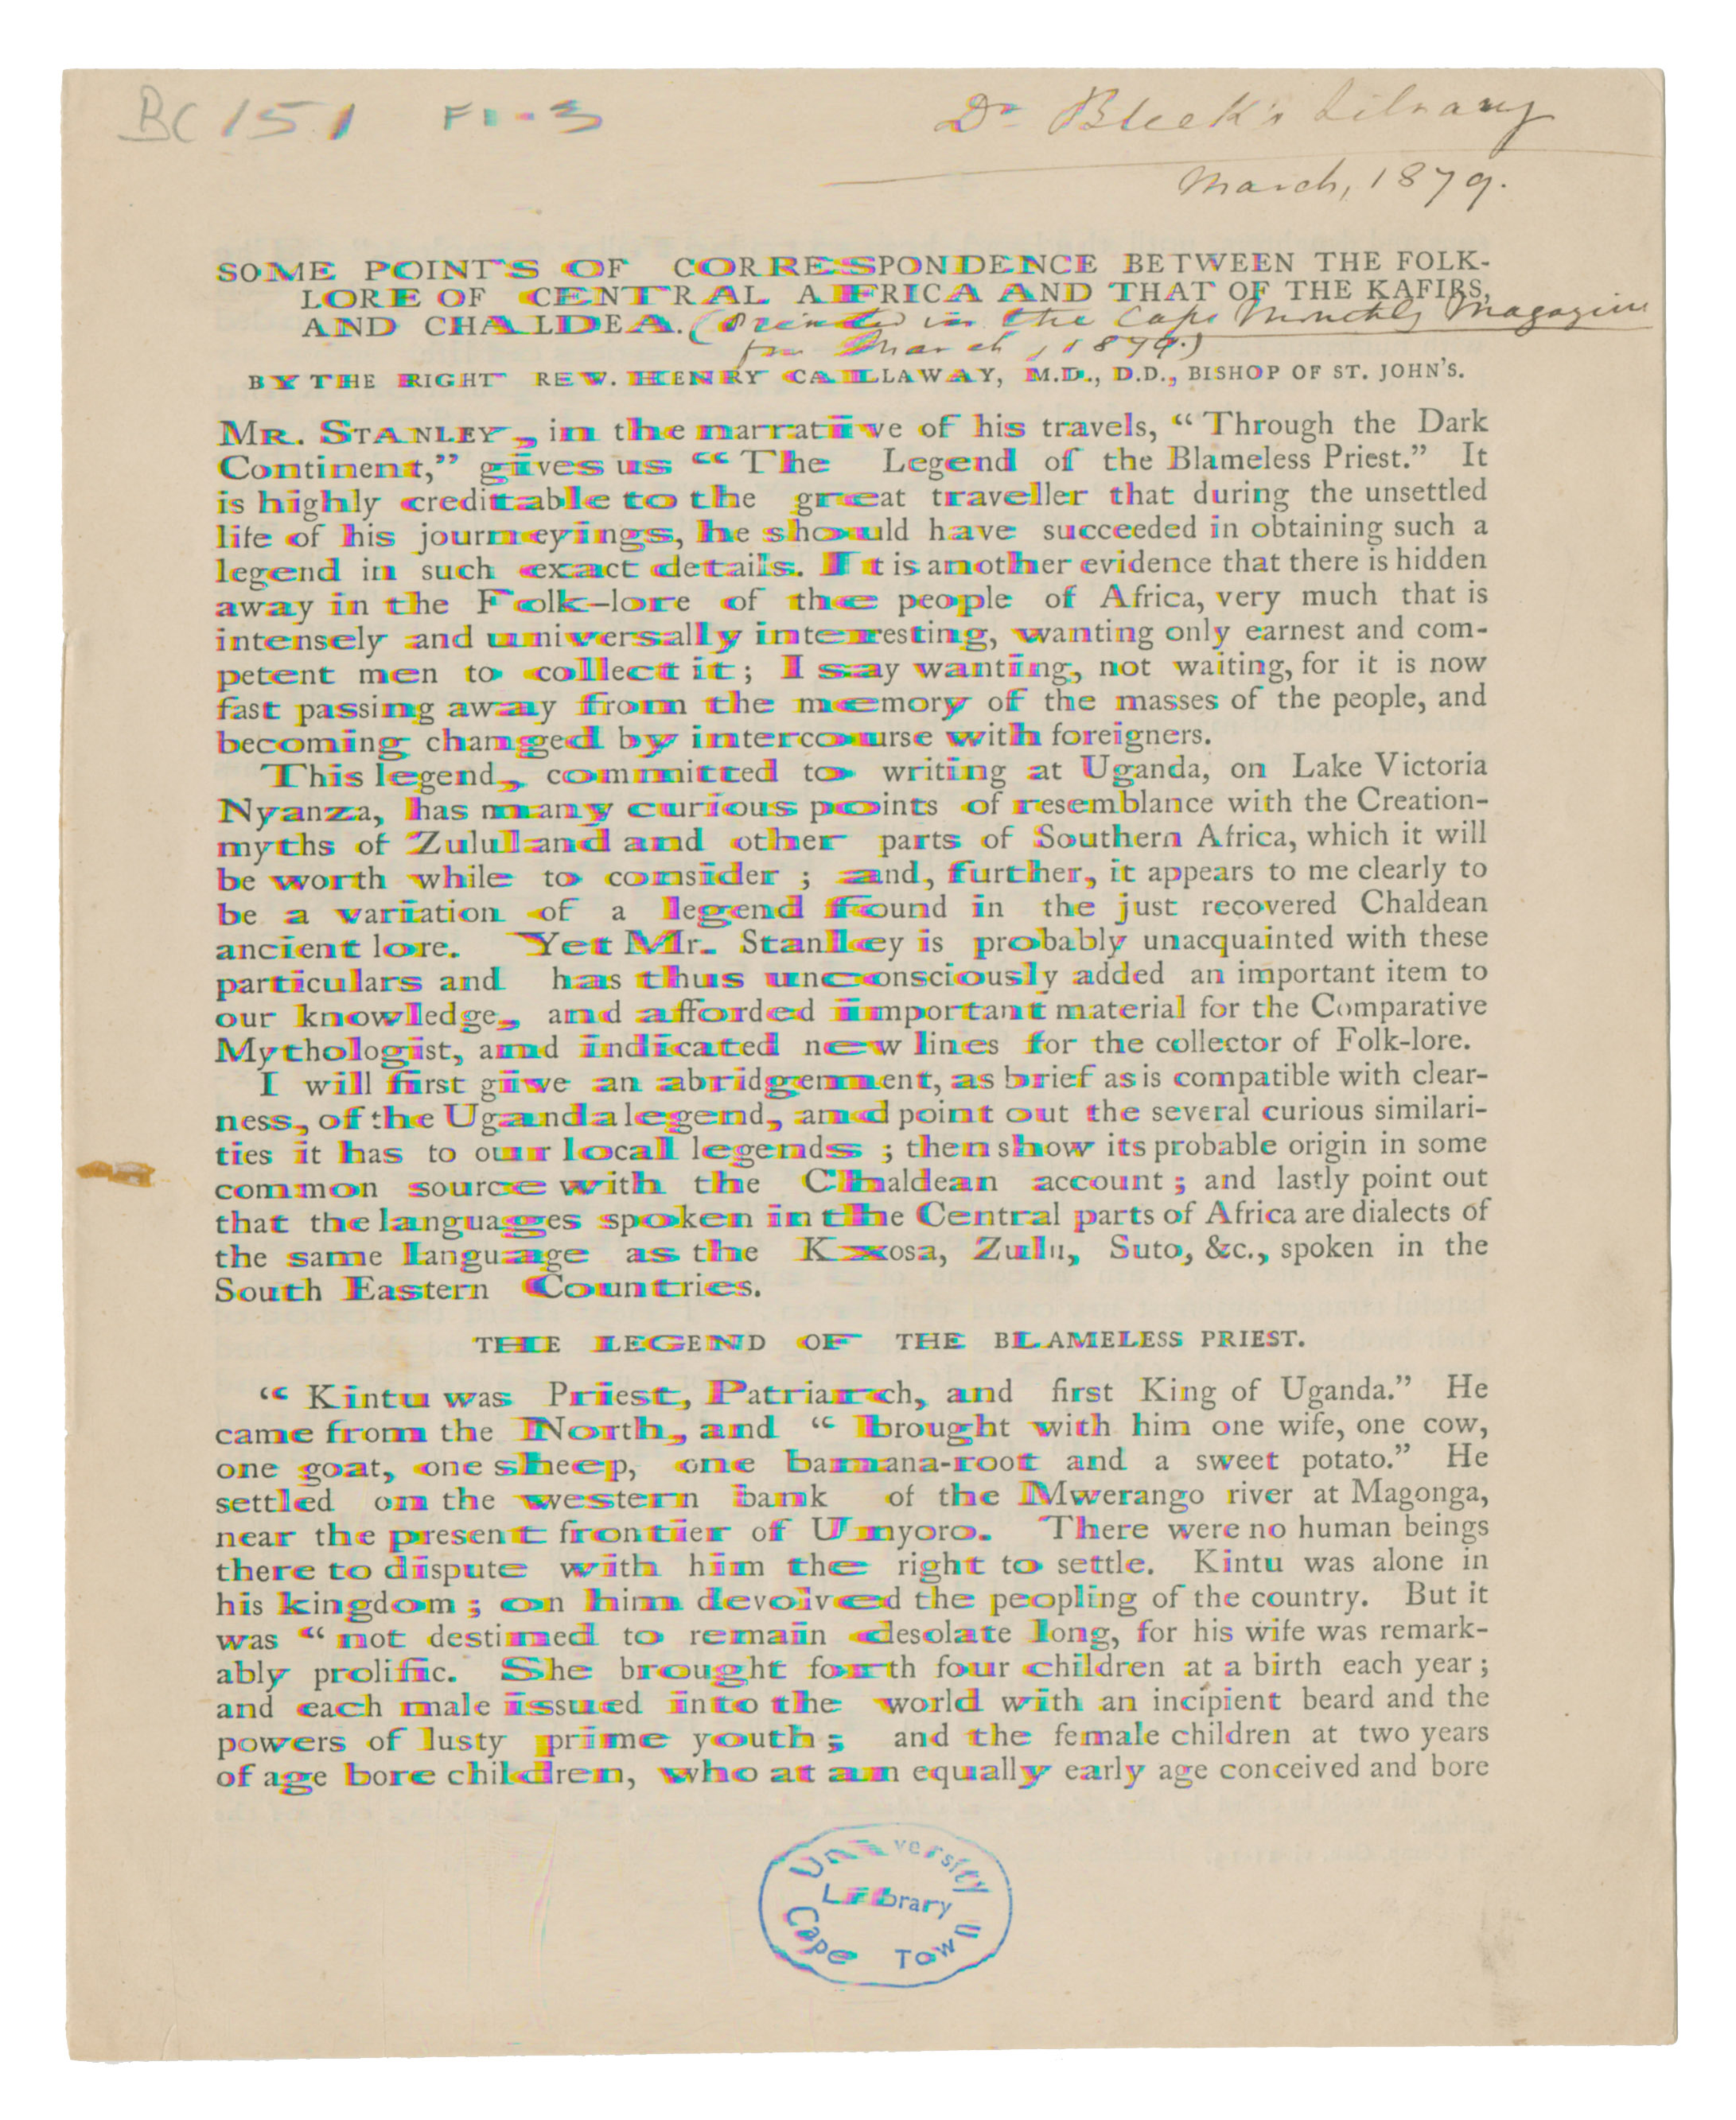 BC 151 F1-3
Dr Bleek's Library
March, 1879.
SOME POINTS OF CORRESPONDENCE BETWEEN THE FOLK-
LORE OF CENTRAL AFRICA AND THAT OF THE KAFIRS,
AND CHALDEA. (Printed in the Cape Monthly Magazine
for March, 1879.)
BY THE RIGHT REV. HENRY CALLAWAY, M.D., D.D., BISHOP OF ST. JOHN'S.
MR. STANLEY, in the narrative of his travels, "Through the Dark
Continent," gives us "The Legend of the Blameless Priest." It
is highly creditable to the great traveller that during the unsettled
life of his journeyings, he should have succeeded in obtaining such a
legend in such exact details. It is another evidence that there is hidden
away in the Folk-lore of the people of Africa, very much that is
intensely and universally interesting, wanting only earnest and com-
petent men to collect it; I say wanting, not waiting, for it is now
fast passing away from the memory of the masses of the people, and
becoming changed by intercourse with foreigners.
This legend, committed to writing at Uganda, on Lake Victoria
Nyanza, has many curious points of resemblance with the Creation-
myths of Zululand and other parts of Southern Africa, which it will
be worth while to consider ; and, further, it appears to me clearly to
be a variation of a legend found in the just recovered Chaldean
ancient lore. Yet Mr. Stanley is probably unacquainted with these
particulars and has thus unconsciously added an important item to
our knowledge, and afforded important material for the Comparative
Mythologist, and indicated new lines for the collector of Folk-lore.
I will first give an abridgement, as brief as is compatible with clear-
ness, of the Uganda legend, and point out the several curious similari-
ties it has to our local legends ; then show its probable origin in some
common source with the Chaldean account ; and lastly point out
that the languages spoken in the Central parts of Africa are dialects of
the same language as the Kxosa, Zulu, Suto, &c., spoken in the
South Eastern Countries.
THE LEGEND OF THE BLAMELESS PRIEST.
"Kintu was Priest, Patriarch, and first King of Uganda." He
came from the North, and "brought with him one wife, one cow,
one goat, one sheep, one banana-root and a sweet potato." He
settled on the western bank of the Mwerango river at Magonga,
near the present frontier of Unyoro. There were no human beings
there to dispute with him the right to settle. Kintu was alone in
his kingdom ; on him devolved the peopling of the country. But it
was "not destined to remain desolate long, for his wife was remark-
ably prolific. She brought forth four children at a birth each year ;
and each male issued into the world with an incipient beard and the
powers of lusty prime youth ; and the female children at two years
of age bore children, who at an equally early age conceived and bore
University
Library
Cape Town